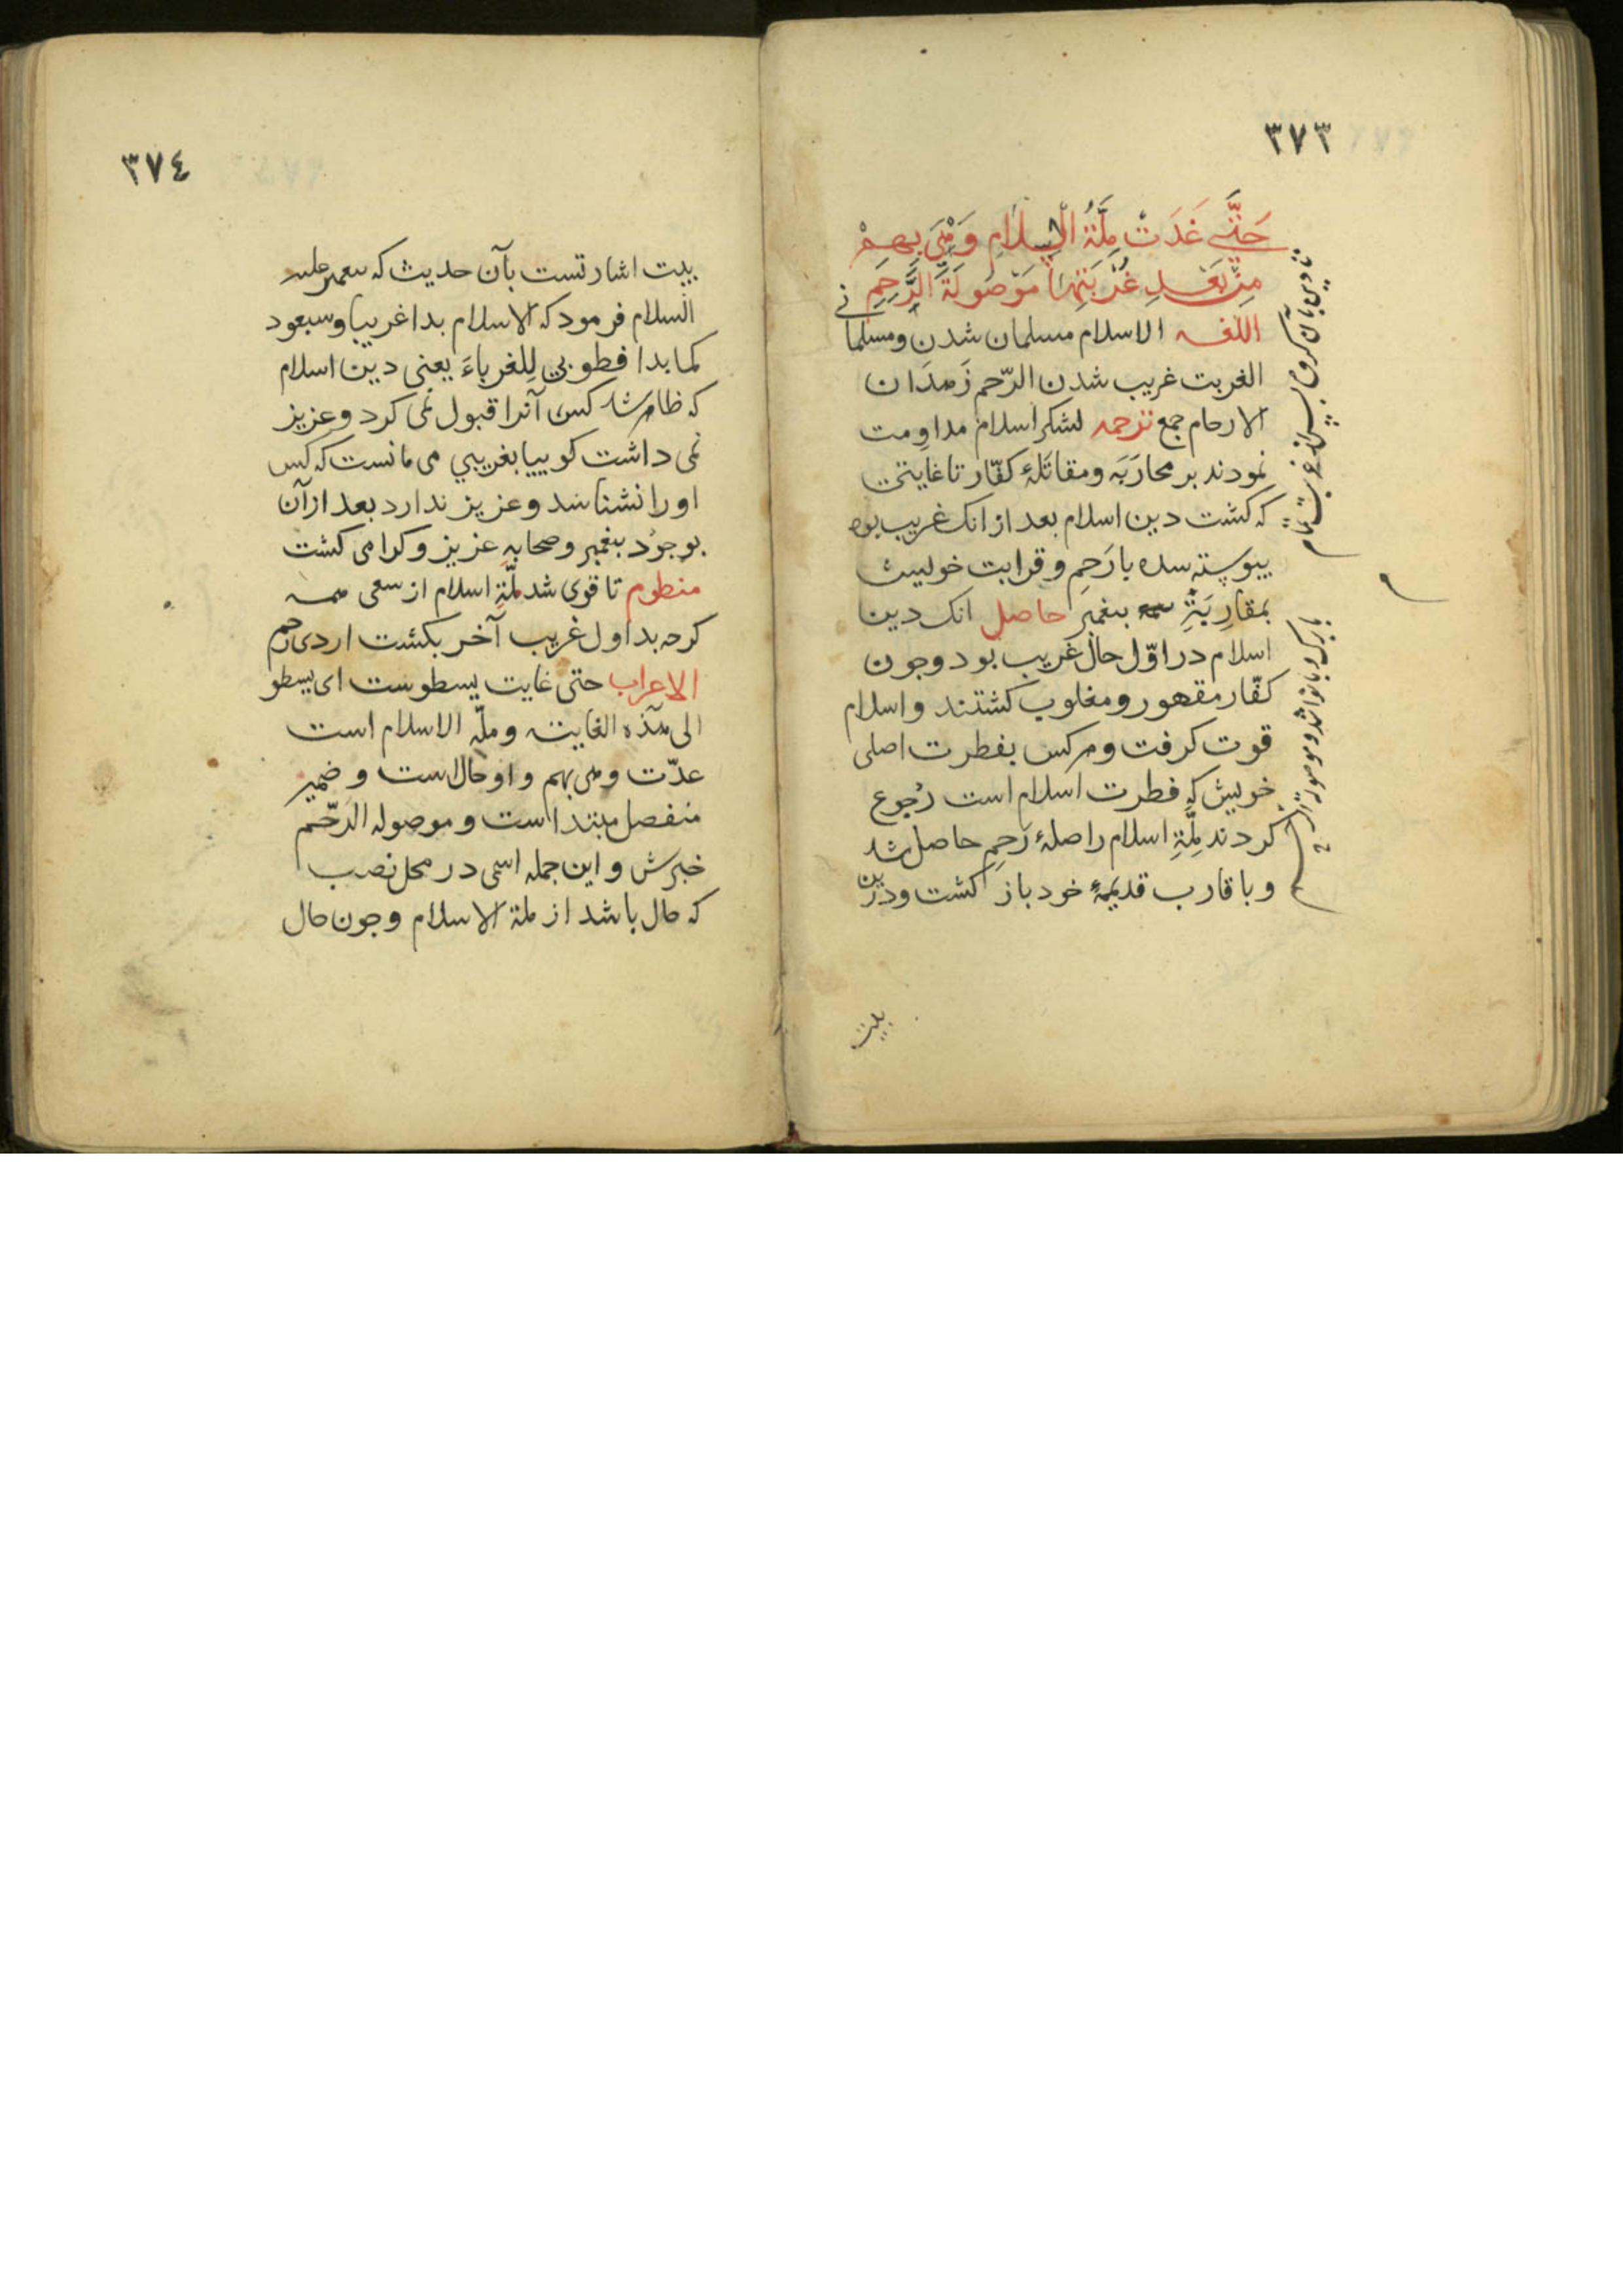 ٣٧٣
حَتّٰی غَدَتْ مِلَّةُ الْاِسْلَامِ وَهْیَ بِهِمْ
مِنْ بَعْدِ غُرْبَتِهَا مَوْصُولَةَ الرَّحِمِ
اللغه الاسلام مسلمان شدن و مسلمانی
الغربت غریب شدن الرّحم زهدان
الارحام جمع ترجمه لشکر اسلام مداومت
نمودند بر محارَبَه و مقاتَلۀ کفّار تا غایتی
که کشت دین اسلام بعد از انک غریب بود
پیوسته شده با رَحِم و قرابت خویش
بمقارِبَةِ پیغمبر حاصل انک دین
اسلام در اوّل حال غریب بود و جون
کفّار مقهور و مغلوب کشتند و اسلام
قوت کرفت و هر کس بفطرت اصلی
خویش که فطرت اسلام است رُجوع
کردند مِلَّةِ اسلام را صلۀ رَحِم حاصل شد
و با قارب قدیمۀ خود باز کشت و درین
بیت
٣٧٤
بیت اشارتست بآن حدیث که پیغمبر علیه
السلام فرمود که الاسلام بدا غریبا و سیعود
کما بدا فطوبی لِلغرباءَ یعنی دین اسلام
که ظاهر شد کسی آنرا قبول نمی کرد و عزیز
نمی داشت کوییا بغریبی می مانست که کس
او را نشناسد و عزیز ندارد بعد از آن
بوجود پیغمبر و صحابه عزیز و کرامی کشت
منظوم تا قوی شد ملّةِ اسلام از سعی همه
کرجه بد اول غریب آخر بکشت از ذی رحم
الاعراب حتی غایت یسطوست ای یسطو
الی هذه الغایته و ملّه الاسلام است
غدّت و هی بهم واو حال است و ضمیر
منفصل مبتدا است و موصوله الرّحم
خبرش و این جمله اسمی در محل نصب
که حال باشد از ملة الاسلام و جون حال